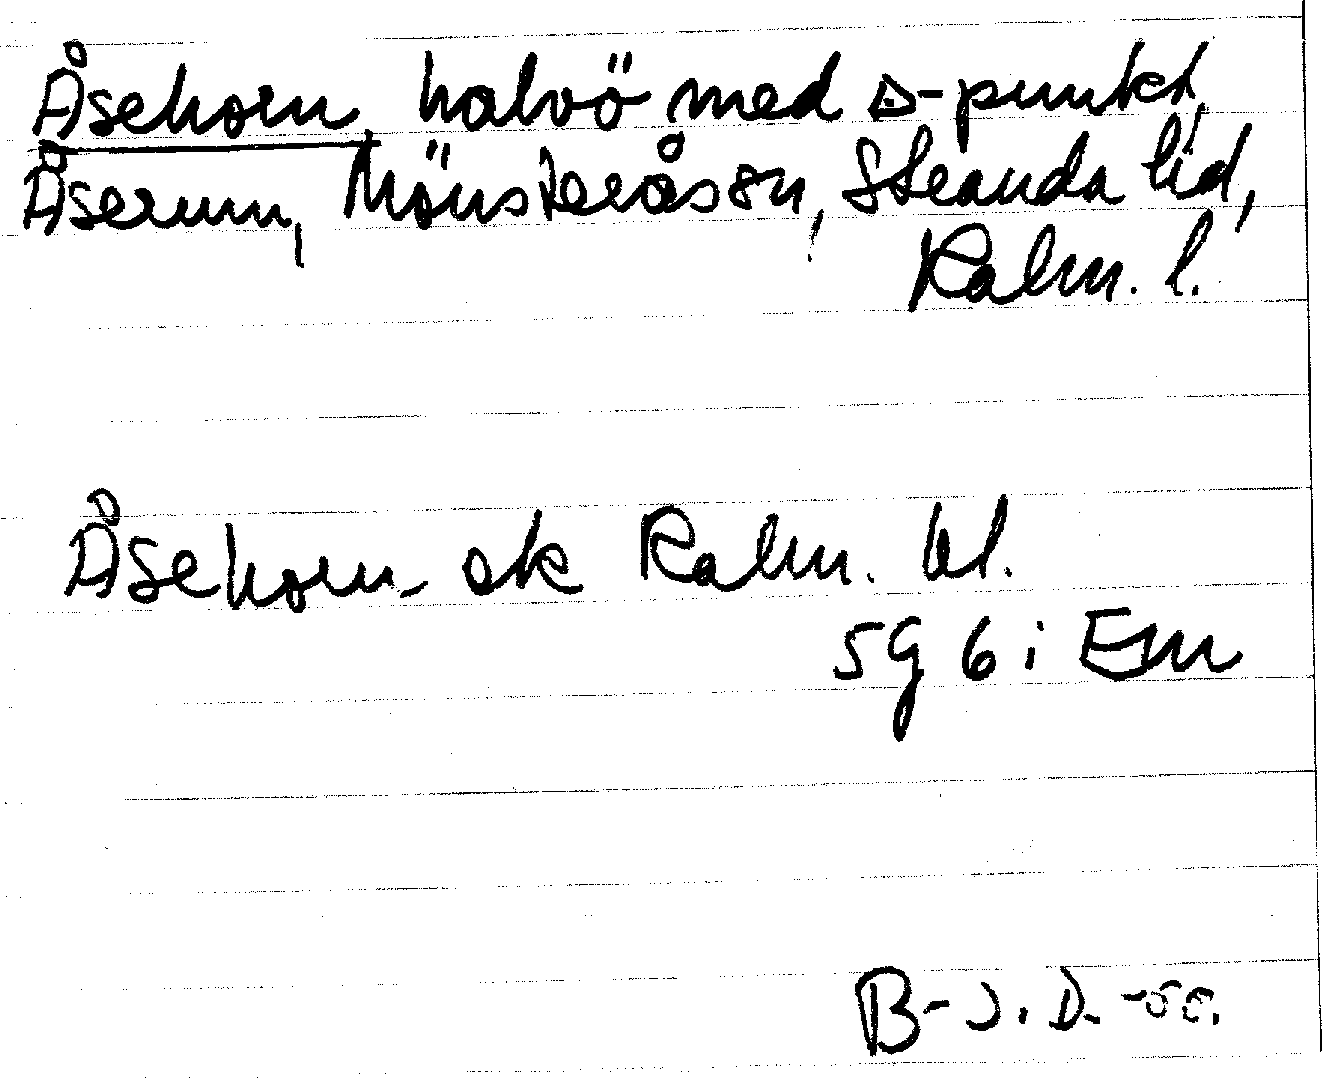 Åsehorn, halvö med △-punkt,
Åserum, Mönsterås sn, Stranda hd,
Kalm. l.
Åsehorn ek Kalm. bl.
5G 6 i Em
B-J.D.